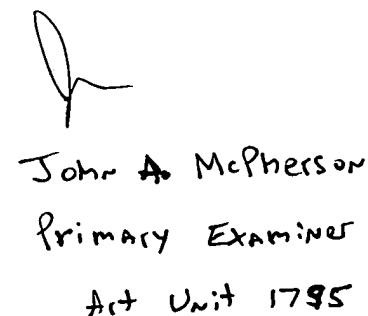 John A. McPherson
Primary Examiner
Art Unit 1795